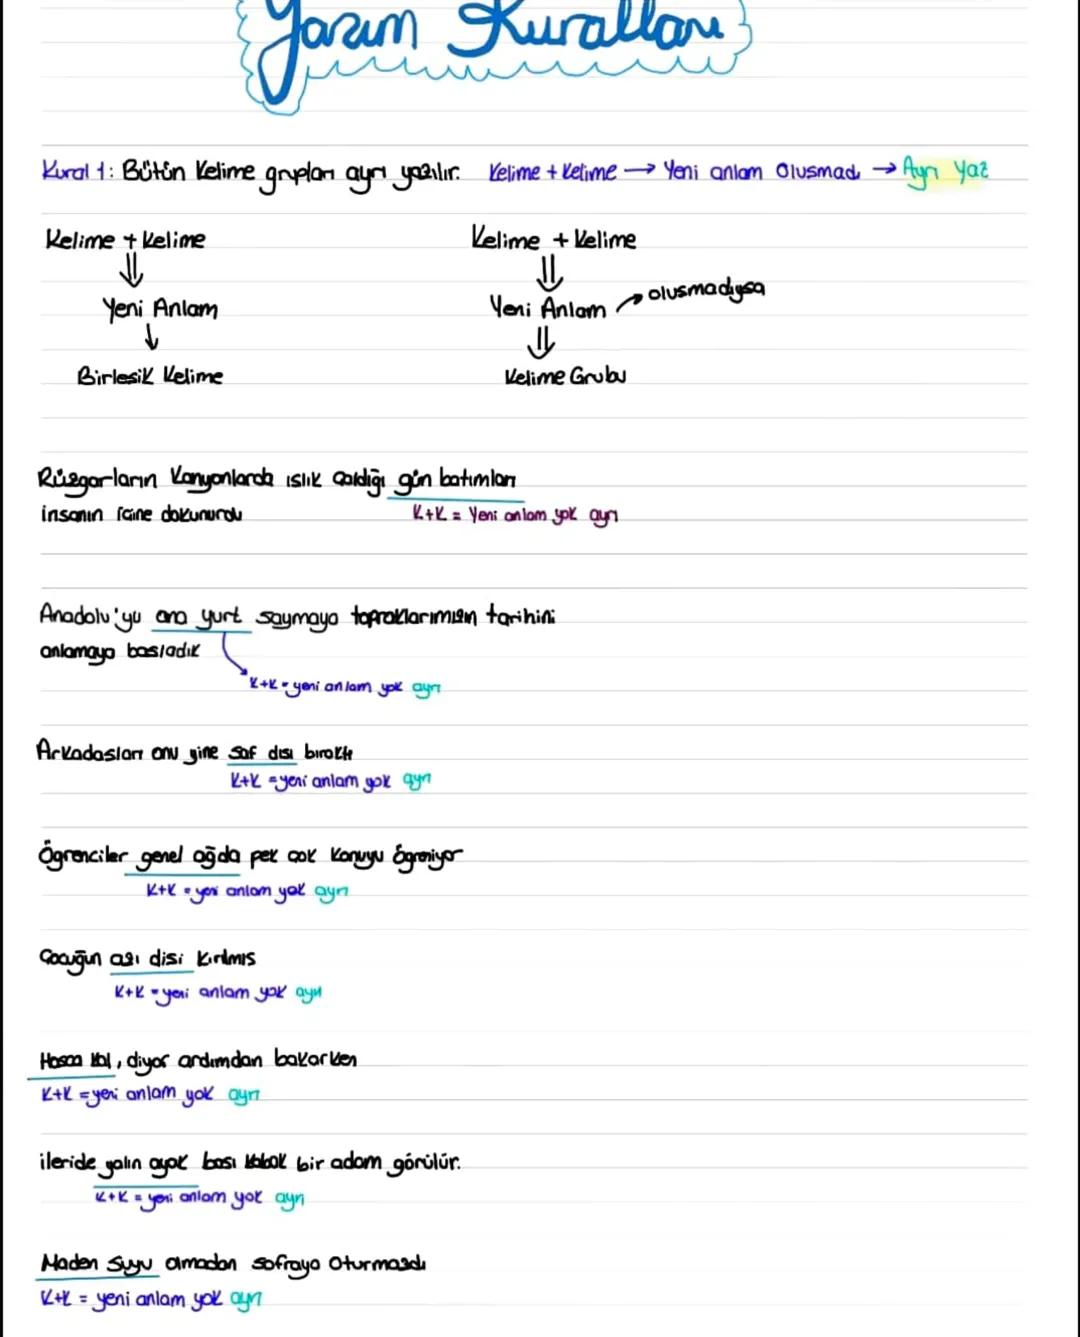 Yazım Kuralları
Kural 1: Bütün Kelime grupları ayrı yazılır. Kelime + Kelime → Yeni anlam Olusmadı → Ayrı Yaz
Kelime + Kelime
⇓
Yeni Anlam
↓
Birlesik Kelime
Kelime + Kelime
⇓
Yeni Anlam → olusmadıysa
⇓
Kelime Grubu
Rüzgarların Kanyonlarda ıslık çaldığı gün batımları
insanın içine dokunurdu
K+K = Yeni anlam yok ayrı
Anadolu'yu ana yurt saymaya topraklarımızın tarihini
anlamaya basladık
K+K = yeni anlam yok ayrı
Arkadasları onu yine saf dısı bıraktı
K+K = yeni anlam yok ayrı
Ögrenciler genel ağda pek çok konuyu ögreniyor
K+K = yeni anlam yok ayrı
Çocuğun azı disi kırılmıs
K+K = yeni anlam yok ayrı
Hosca kal, diyor ardımdan bakarken
K+K = yeni anlam yok ayrı
ileride yalın ayak bası kabak bir adam görülür.
K+K = yeni anlam yok ayrı
Maden suyu olmadan sofraya oturmazdı
K+K = yeni anlam yok ayrı